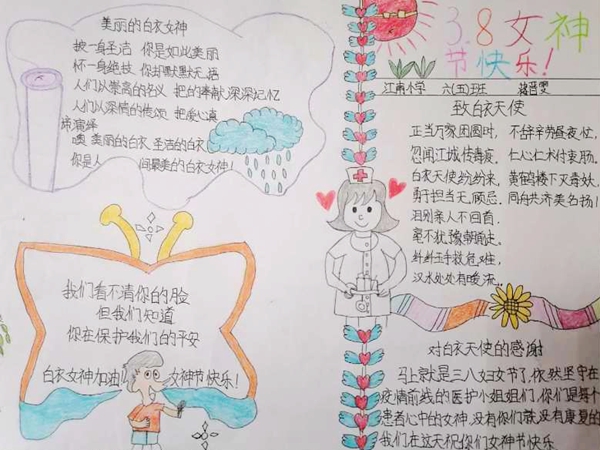 美丽的白衣女神
披一身圣洁 你是如此美丽
怀一身绝技 你却默默无语
人们从崇高的名义 把的奉献深深记忆
人们从深情的传颂 把爱心真
噢 美丽的白衣 圣洁的白衣
你是人 间最美的白衣女神！
3.8女神
节快乐！
江南小学 六(五)班
致白衣天使
正当万家团圆时， 不辞辛劳昼夜忙，
忽闻江城传毒疫， 仁心仁术付衷肠。
白衣天使纷纷来， 黄鹤楼下灭毒妖，
勇于担当无顾忌， 同舟共济美名扬！
泪别亲人不回首，
毫不犹豫
纤纤玉手救危难，
汉水处处有暖流。
我们看不清你的脸
但我们知道
你在保护我们的平安
白衣女神加油！ 女神节快乐！
对白衣天使的感谢
马上就是三八妇女节了，依然坚守在
疫情前线的医护小姐姐们，你们是每个
患者心中的女神，没有你们就没有康复的
我们在这天祝你们女神节快乐